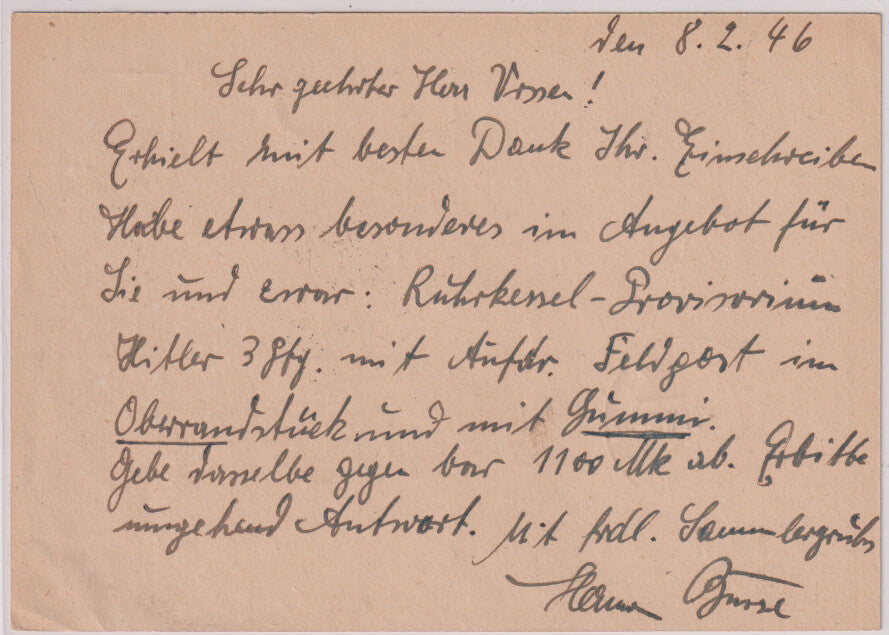 den 8. 2. 46
Sehr geehrter Herr Vissen!
Erhielt mit besten Dank Ihr. Einschreiben
Habe etwas besonderes im Angebot für
Sie und zwar: Ruhrkessel-Provisorium
Hitler 3 Pfg. mit Aufdr. Feldpost im
Oberrandstück und mit Gummi.
Gebe dasselbe gegen bar 1100 Mk ab. Erbitte
umgehend Antwort. Mit frdl. Sammlergrüßen
Hans